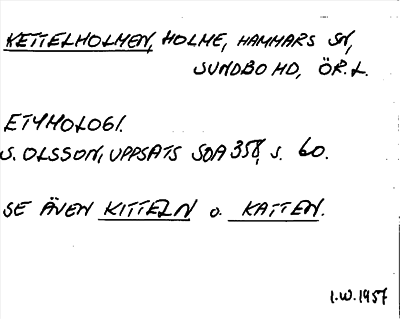 KETTELHOLMEN, HOLME, HAMMARS SN,
SUNDBO HD, ÖR.L.
ETYMOLOGI.
S. OLSSON, UPPSATS SOA 358, S. 60.
SE ÄVEN KITTELN o. KATTEN.
I.W.1957